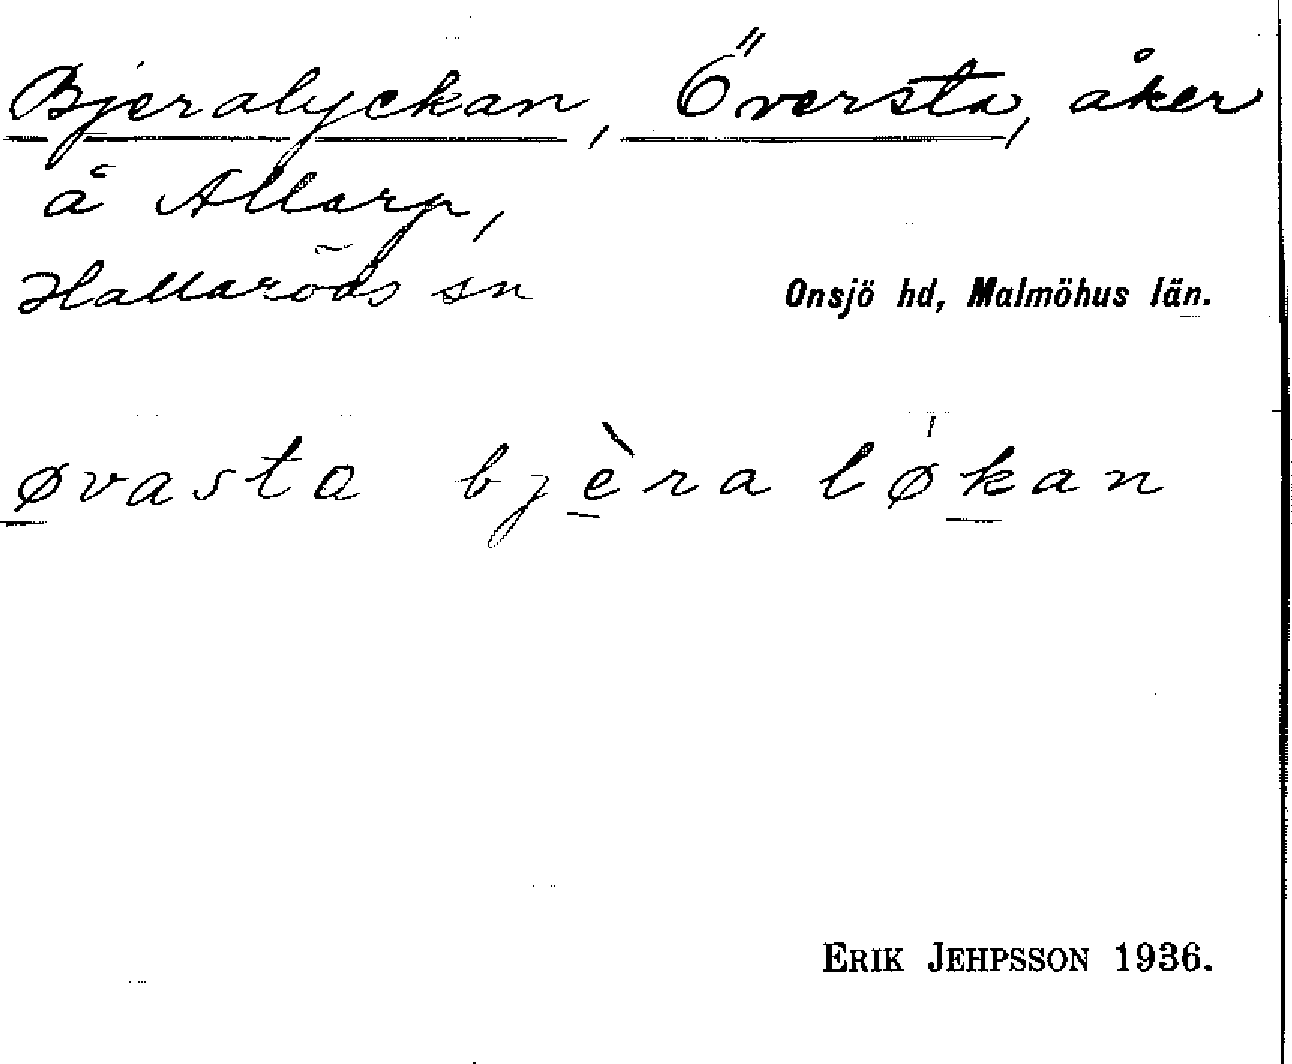 Bjeralyckan, Översta, åker
å Allarp,
Hallaröds sn Onsjö hd, Malmöhus län.
øvasta bjèra løkan
ERIK JEHPSSON 1936.